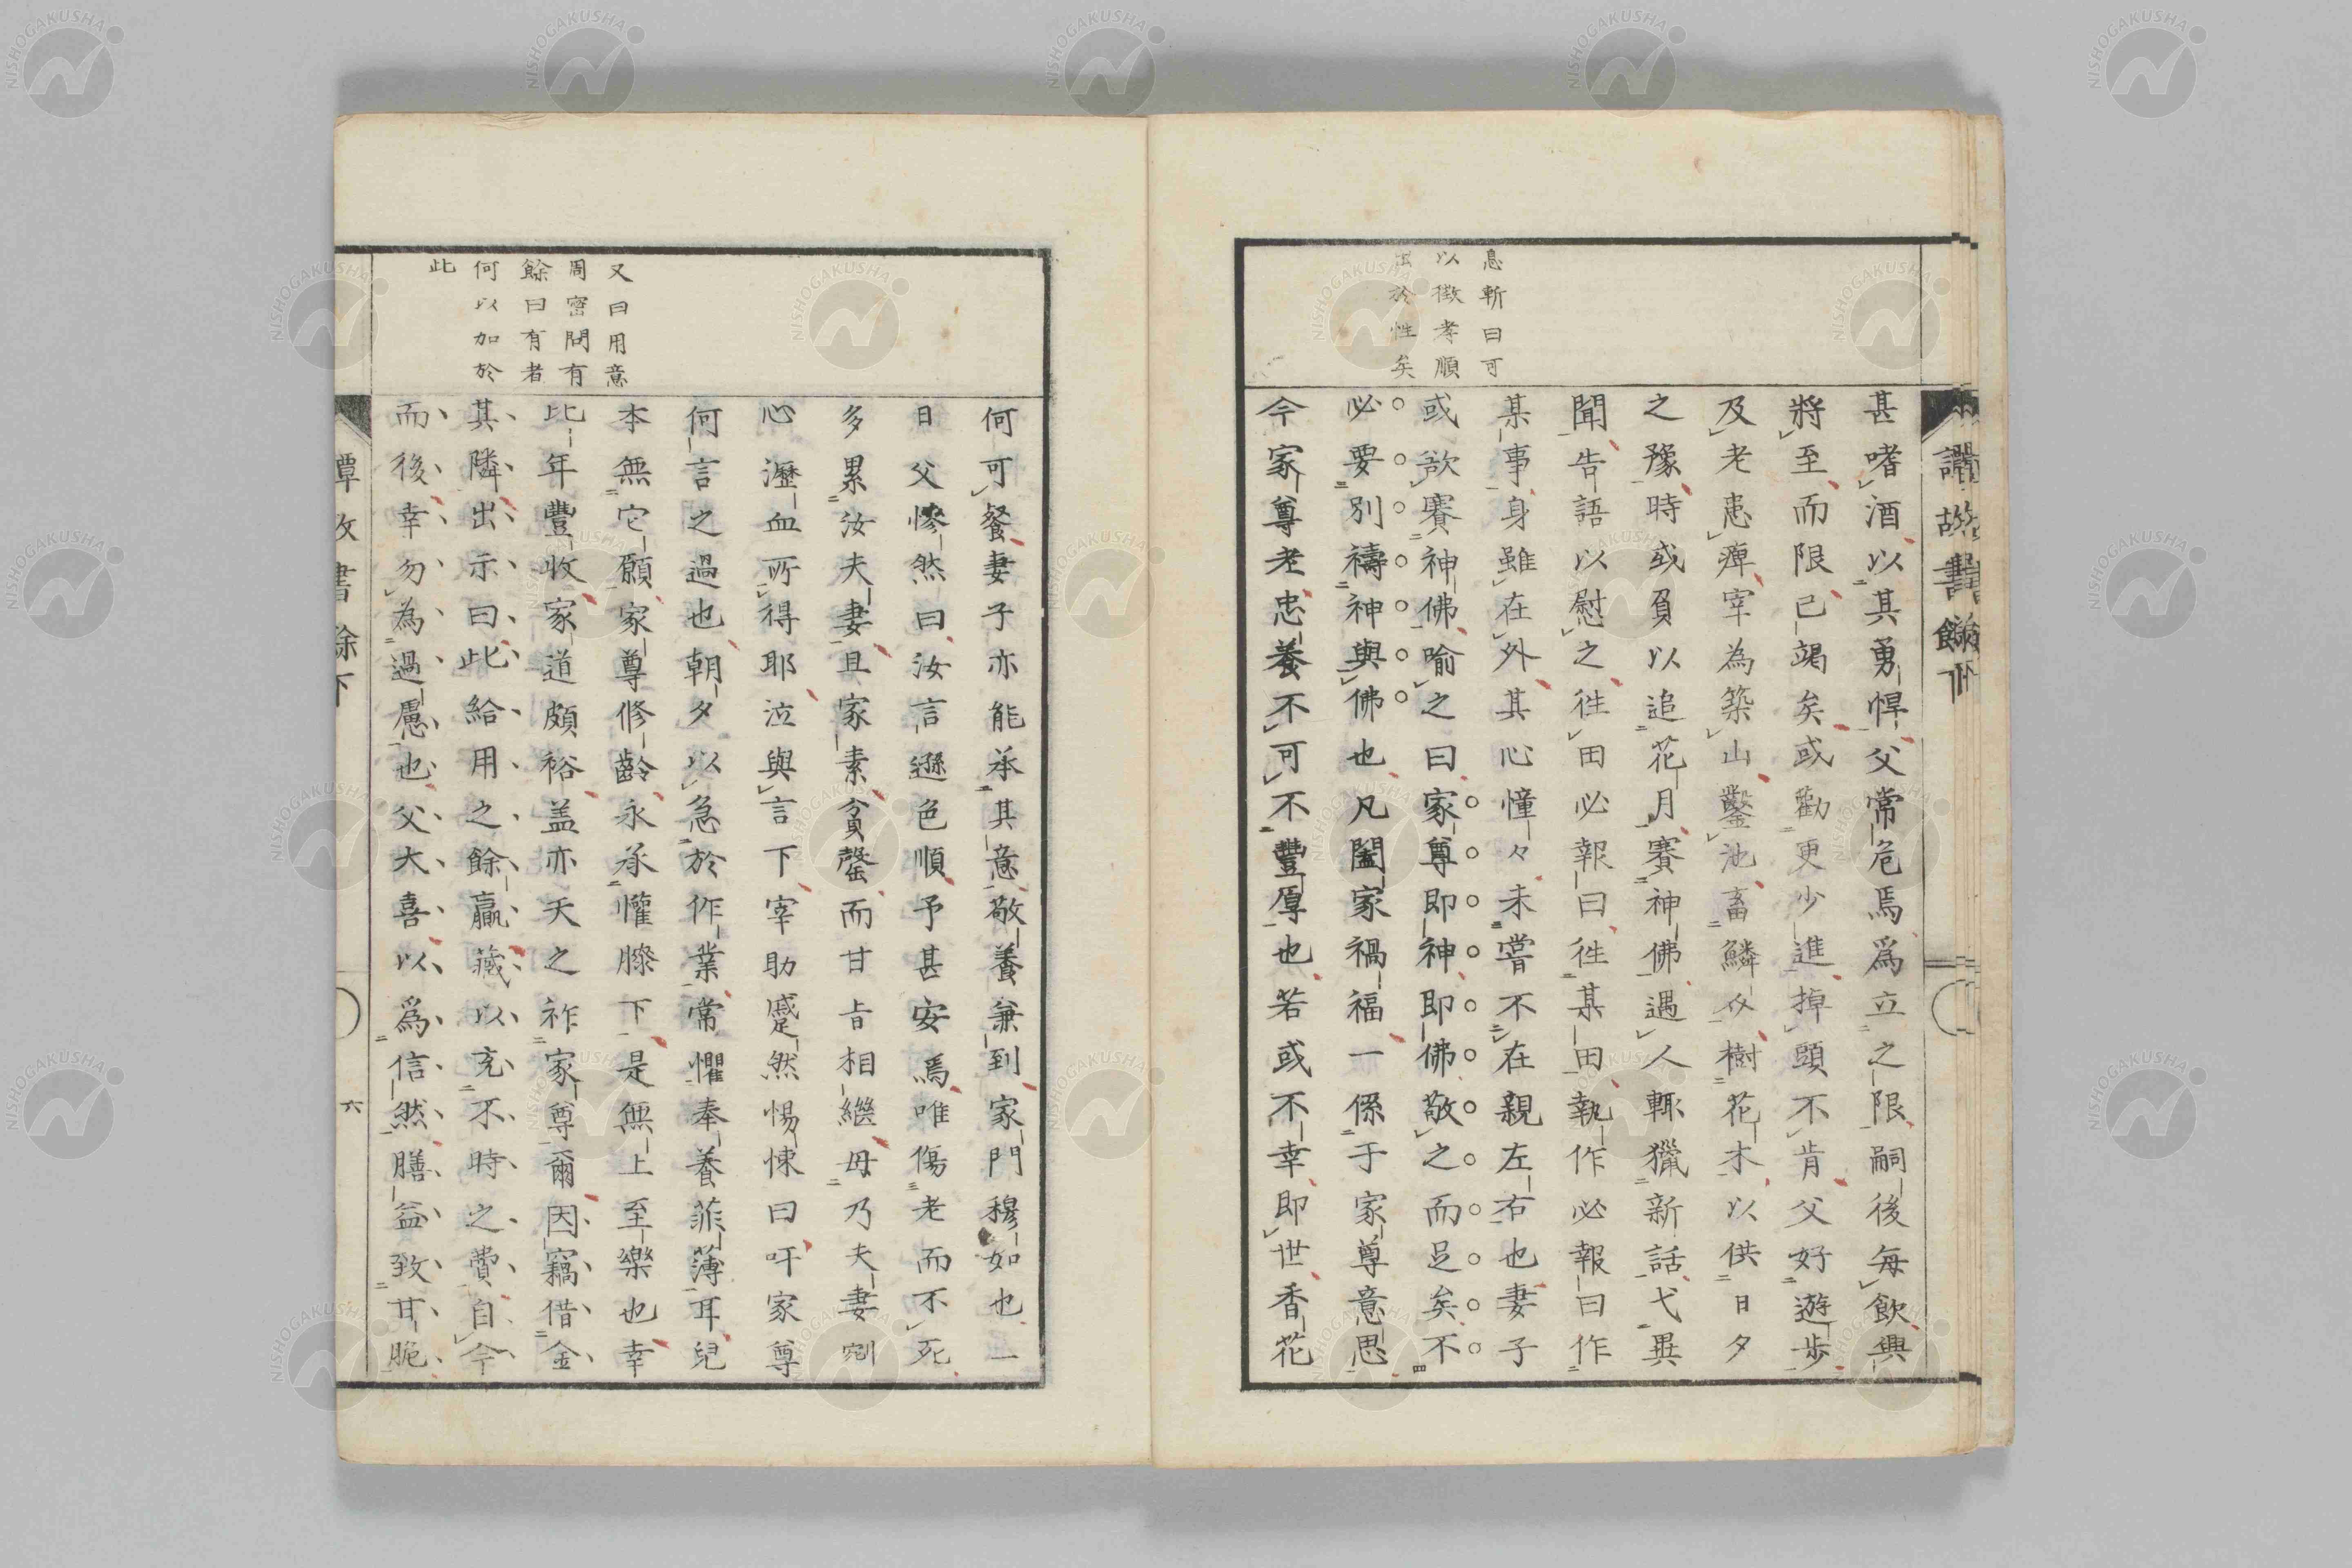 譚故書餘下
息軒曰可
以徴孝順
出於性矣
甚嗜酒以其勇悍父常危焉爲立之限嗣後每飲興
將至而限已竭矣或勸更少進掉頭不肯父好遊步
及老患痺宰為築山鑿池畜鱗分樹花木以供日夕
之豫時或負以追花月賽神佛遇人輒獵新話弋異
聞告語以慰之往田必報曰往某田執作必報曰作
某事身雖在外其心憧々未嘗不在親左右也妻子
或欲賽神佛喻之曰家尊即神即佛敬之而足矣不
必要別禱神與佛也凡闔家禍福一係于家尊意思
今家尊老忠養不可不豐厚也若或不幸即世香花
又曰用意
周密問有
餘曰有者
何以加於
此
何可餐妻子亦能承其意敬養兼到家門穆如也一
日父慘然曰汝言遜色順予甚安焉唯傷老而不死
多累汝夫妻且家素貧罄而甘旨相繼毋乃夫妻剜
心瀝血所得耶泣與言下宰助蹙然惕悚曰吁家尊
何言之過也朝夕以急於作業常懼奉養菲薄耳兒
本無它願家尊修齡永承懽膝下是無上至樂也幸
比年豐收家道頗裕盖亦天之祚家尊爾因竊借金
其隣出示曰此給用之餘贏藏以充不時之費自今
而後幸勿為過慮也父大喜以爲信然膳益致甘脆
譚故書餘下
六